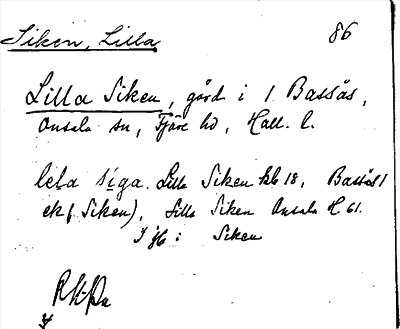 Siken, Lilla
86
Lilla Siken, gård i 1 Bassås,
Onsala sn, Fjäre hd, Hall. l.
lela siga. Lilla Siken kb 18, Bassås 1
ek f. Siken), Lilla Siken Onsala H 61.
I jb: Siken